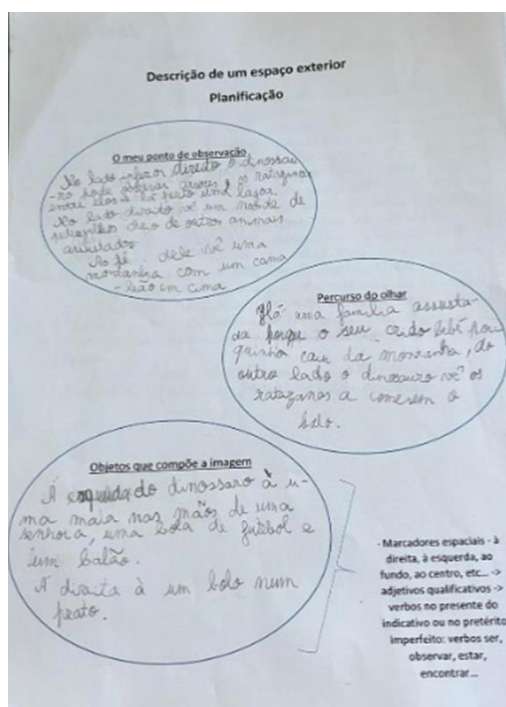 Descrição de um espaço exterior
Planificação
O meu ponto de observação
No lado inferior direito o dinossau
-ro pode observar árvores e os ratazanas
entre elos e há perto uma lagoa.
No lado direito vê um monte de
cheio de outros animais
assustados
Ao pé dele vê uma
montanha com um cama
-leão em cima
Percurso do olhar
Há uma família assusta-
da porque o seu bebé
caiu da montanha, do
outro lado o dinossauro vê os
ratazanas a comerem o
bolo.
Objetos que compõe a imagem
Á esquerda do dinossaro à u-
ma nas mãos de uma
senhora, uma bola de futebol e
um balão.
Á direita à um bolo num
prato.
- Marcadores espaciais - à
direita, à esquerda, ao
fundo, ao centro, etc... ->
adjetivos qualificativos ->
verbos no presente do
indicativo ou no pretérito
imperfeito: verbos ser,
observar, estar,
encontrar...